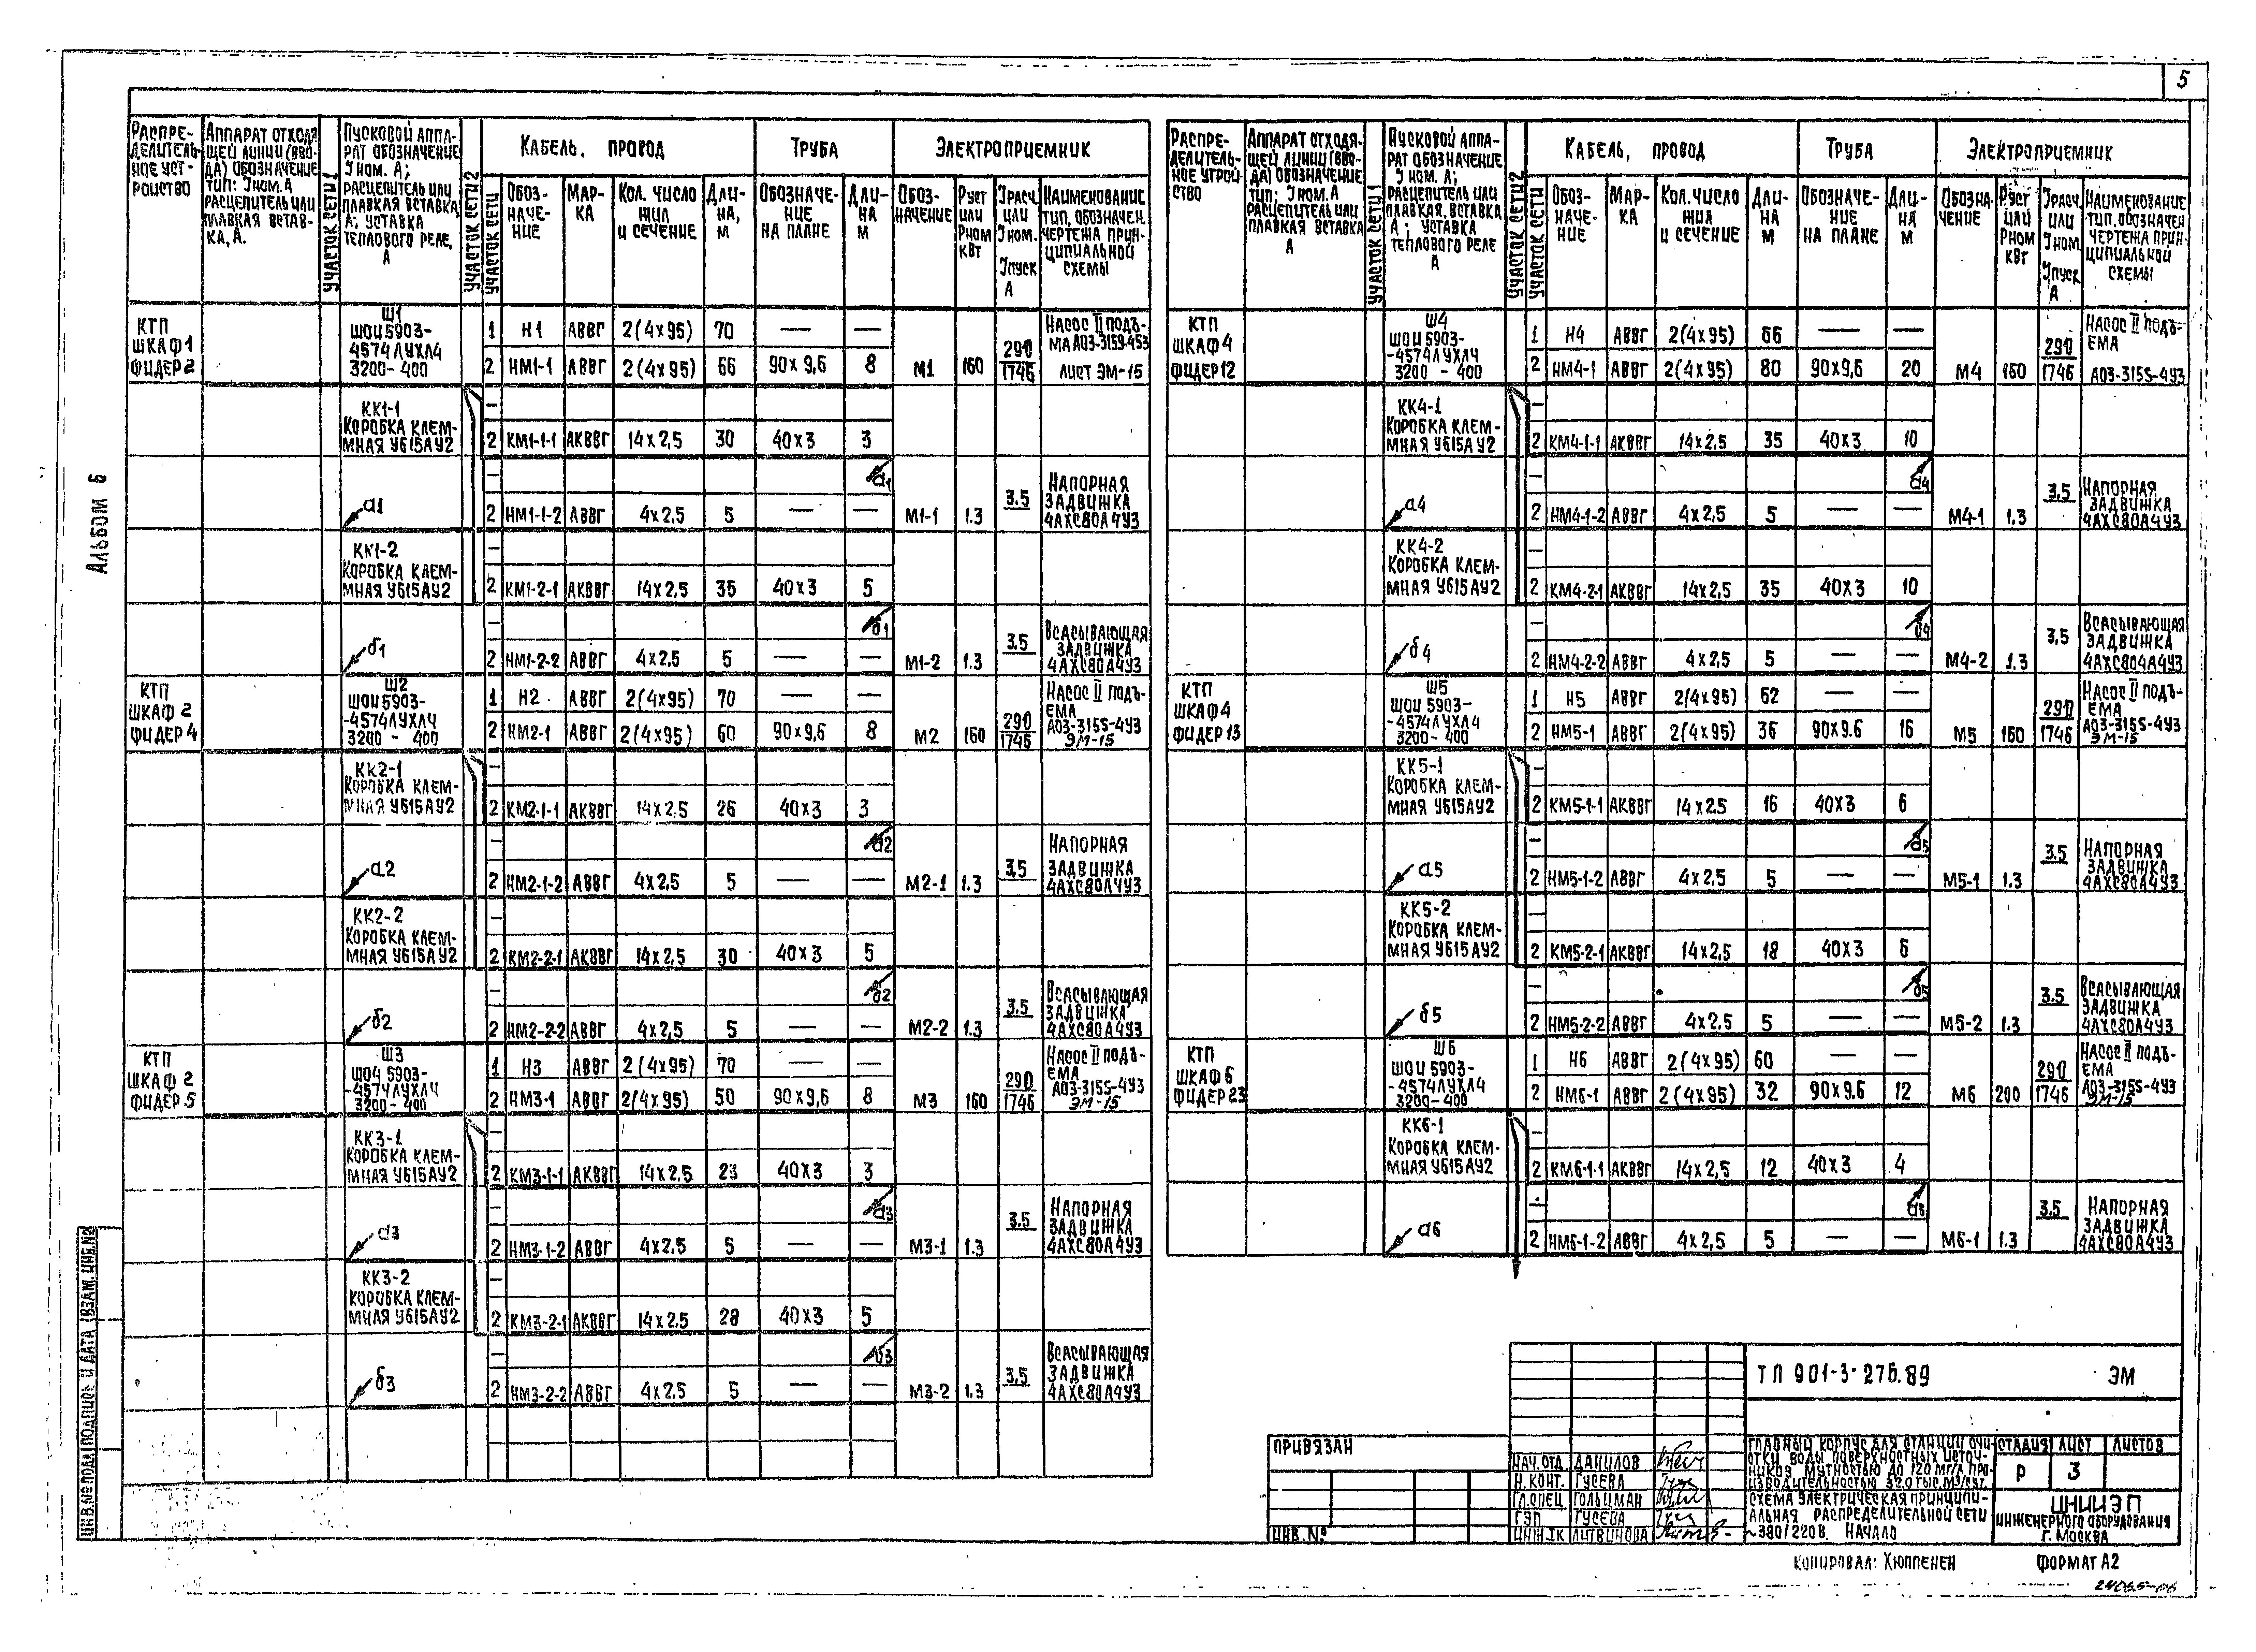 5
Альбом 6
Распределительное устройство
Аппарат отходящей линии (ввода) обозначение тип: Iном. А расцепитель или плавкая вставка, А.
Участок сети 1
Пусковой аппарат обозначение Iном. А; расцепитель или плавкая вставка А; уставка теплового реле, А
Участок сети 2
Участок сети
Кабель, провод
Обозначение
Марка
Кол. число жил и сечение
Длина, м
Труба
Обозначение на плане
Длина м
Электроприемник
Обозначение
Руст или Рном кВт
Iрасч. или Iном. Iпуск А
Наименование тип, обознач. чертежа принципиальной схемы
КТП шкаф 1 фидер 2
Ш1 ШОЦ5903-4574ЛУХЛ4 3200-400
1 Н1 АВВГ 2(4х95) 70 — —
2 НМ1-1 АВВГ 2(4х95) 66 90х9,6 8 М1 160 290/1746 Насос II подъема А03-315S-4У3 лист ЭМ-15
КК1-1 Коробка клеммная У615АУ2
2 КМ1-1-1 АКВВГ 14х2,5 30 40х3 3
а1
2 НМ1-1-2 АВВГ 4х2,5 5 — — М1-1 1.3 3.5 Напорная задвижка 4АХС80А4У3
КК1-2 Коробка клеммная У615АУ2
2 КМ1-2-1 АКВВГ 14х2,5 35 40х3 5
б1
2 НМ1-2-2 АВВГ 4х2,5 5 — — М1-2 1.3 3.5 Всасывающая задвижка 4АХС80А4У3
КТП шкаф 2 фидер 4
Ш2 ШОЦ5903-4574ЛУХЛ4 3200-400
1 Н2 АВВГ 2(4х95) 70 — —
2 НМ2-1 АВВГ 2(4х95) 60 90х9,6 8 М2 160 290/1746 Насос II подъема А03-315S-4У3 ЭМ-15
КК2-1 Коробка клеммная У615АУ2
2 КМ2-1-1 АКВВГ 14х2,5 26 40х3 3
а2
2 НМ2-1-2 АВВГ 4х2,5 5 — — М2-1 1.3 3,5 Напорная задвижка 4АХС80А4У3
КК2-2 Коробка клеммная У615АУ2
2 КМ2-2-1 АКВВГ 14х2,5 30 40х3 5
б2
2 НМ2-2-2 АВВГ 4х2,5 5 — — М2-2 1.3 3.5 Всасывающая задвижка 4АХС80А4У3
КТП шкаф 2 фидер 5
Ш3 ШОЦ5903-4574ЛУХЛ4 3200-400
1 Н3 АВВГ 2(4х95) 70 — —
2 НМ3-1 АВВГ 2(4х95) 50 90х9,6 8 М3 160 290/1746 Насос II подъема А03-315S-4У3 ЭМ-15
КК3-1 Коробка клеммная У615АУ2
2 КМ3-1-1 АКВВГ 14х2.5 23 40х3 3
а3
2 НМ3-1-2 АВВГ 4х2,5 5 — — М3-1 1.3 3.5 Напорная задвижка 4АХС80А4У3
КК3-2 Коробка клеммная У615АУ2
2 КМ3-2-1 АКВВГ 14х2.5 28 40х3 5
б3
2 НМ3-2-2 АВВГ 4х2,5 5 — — М3-2 1.3 3.5 Всасывающая задвижка 4АХС80А4У3
Распределительное утройство
Аппарат отходящей линии (ввода) обозначение тип: Iном. А расцепитель или плавкая вставка А
Участок сети 1
Пусковой аппарат обозначение Iном. А; расцепитель или плавкая, вставка А; уставка теплового реле А
Участок сети 2
Участок сети
Кабель, провод
Обозначение
Марка
Кол. число жил и сечение
Длина м
Труба
Обозначение на плане
Длина м
Электроприемник
Обозначение
Руст или Рном кВт
Iрасч. или Iном. Iпуск А
Наименование тип, обознач чертежа принципиальной схемы
КТП шкаф 4 фидер 12
Ш4 ШОЦ5903-4574ЛУХЛ4 3200-400
1 Н4 АВВГ 2(4х95) 66 — —
2 НМ4-1 АВВГ 2(4х95) 80 90х9,6 20 М4 160 290/1746 Насос II подъема А03-315S-4У3
КК4-1 Коробка клеммная У615АУ2
2 КМ4-1-1 АКВВГ 14х2,5 35 40х3 10
а4
2 НМ4-1-2 АВВГ 4х2,5 5 — — М4-1 1.3 3,5 Напорная задвижка 4АХС80А4У3
КК4-2 Коробка клеммная У615АУ2
2 КМ4-2-1 АКВВГ 14х2,5 35 40х3 10
б4
2 НМ4-2-2 АВВГ 4х2,5 5 — — М4-2 1.3 3,5 Всасывающая задвижка 4АХС80А4У3
КТП шкаф 4 фидер 13
Ш5 ШОЦ5903-4574ЛУХЛ4 3200-400
1 Н5 АВВГ 2(4х95) 62 — —
2 НМ5-1 АВВГ 2(4х95) 36 90х9.6 16 М5 160 290/1746 Насос II подъема А03-315S-4У3 ЭМ-15
КК5-1 Коробка клеммная У615АУ2
2 КМ5-1-1 АКВВГ 14х2.5 16 40х3 6
а5
2 НМ5-1-2 АВВГ 4х2,5 5 — — М5-1 1.3 3.5 Напорная задвижка 4АХС80А4У3
КК5-2 Коробка клеммная У615АУ2
2 КМ5-2-1 АКВВГ 14х2,5 18 40х3 6
б5
2 НМ5-2-2 АВВГ 4х2,5 5 — — М5-2 1.3 3.5 Всасывающая задвижка 4АХС80А4У3
КТП шкаф 6 фидер 23
Ш6 ШОЦ5903-4574ЛУХЛ4 3200-400
1 Н6 АВВГ 2(4х95) 60 — —
2 НМ6-1 АВВГ 2(4х95) 32 90х9.6 12 М6 200 290/1746 Насос II подъема А03-315S-4У3 ЭМ-15
КК6-1 Коробка клеммная У615АУ2
2 КМ6-1-1 АКВВГ 14х2,5 12 40х3 4
а6
2 НМ6-1-2 АВВГ 4х2,5 5 — — М6-1 1.3 3.5 Напорная задвижка 4АХС80А4У3
Привязан
Инв. №
Нач. отд. Данилов
Н. конт. Гусева
Гл. спец. Гольцман
ГЭП Гусева
Инж. IК Литвинова
ТП 901-3-276.89 ЭМ
Главный корпус для станции очистки воды поверхностных источников мутностью до 120 мг/л производительностью 32,0 тыс. м3/сут.
Стадия Лист Листов
Р 3
Схема электрическая принципиальная распределительной сети ~380/220 В. Начало
ЦНИИЭП
инженерного оборудования
г. Москва
Инв. № подл. Подпись и дата Взам. инв. №
Копировал: Хюппенен Формат А2
24065-06